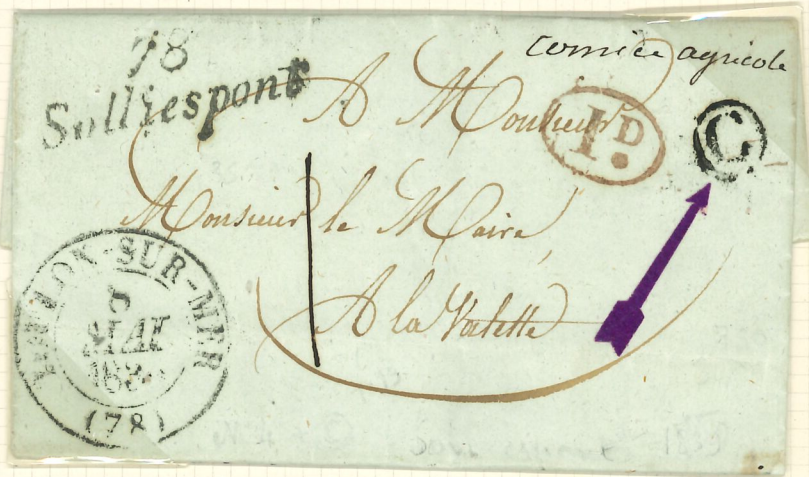 78
Solliespont
comice agricole
A Monsieur
1D
C
Monsieur le Maire
A la Valette
TOULON-SUR-MER
5
MAI
(78)